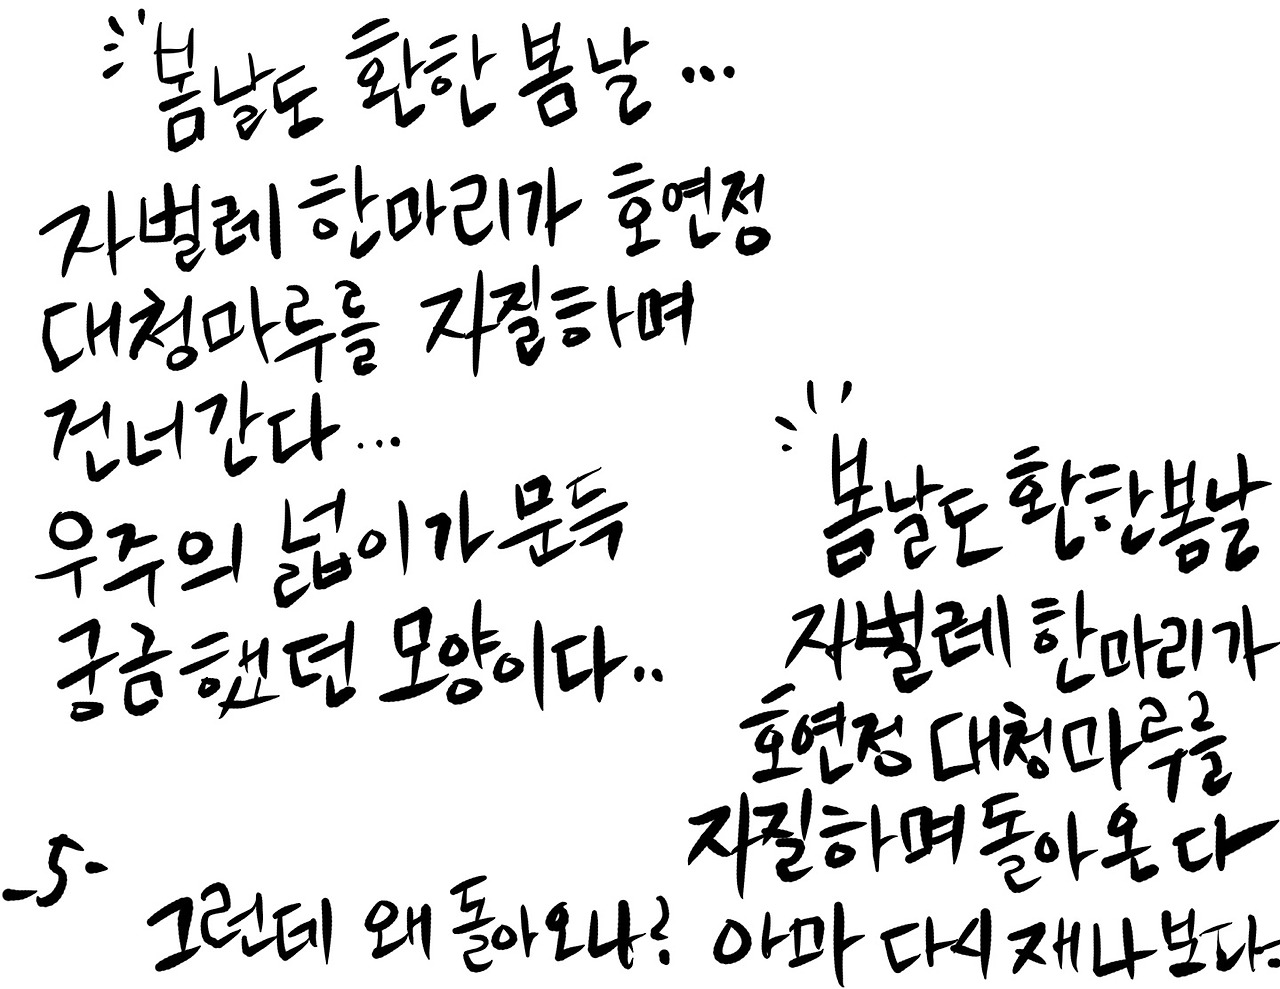 봄날도 환한 봄날...
자벌레 한마리가 호연정
대청마루를 자질하며
건너간다...
우주의 넓이가 문득
궁금했던 모양이다..
봄날도 환한봄날
자벌레 한마리가
호연정 대청마루를
자질하며 돌아온다
-5-
그런데 왜 돌아오나? 아마 다시 재나보다.